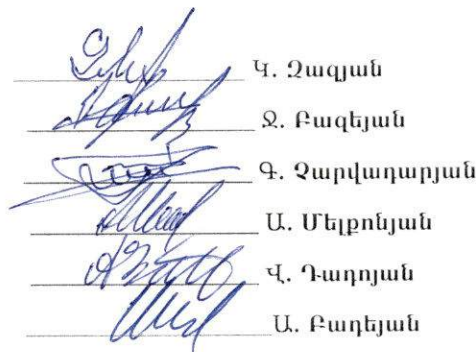 Կ. Չազյան
Ջ. Բազեյան
Գ. Չարվադարյան
Ա. Մելքոնյան
Վ. Դադոյան
Ա. Բադեյան